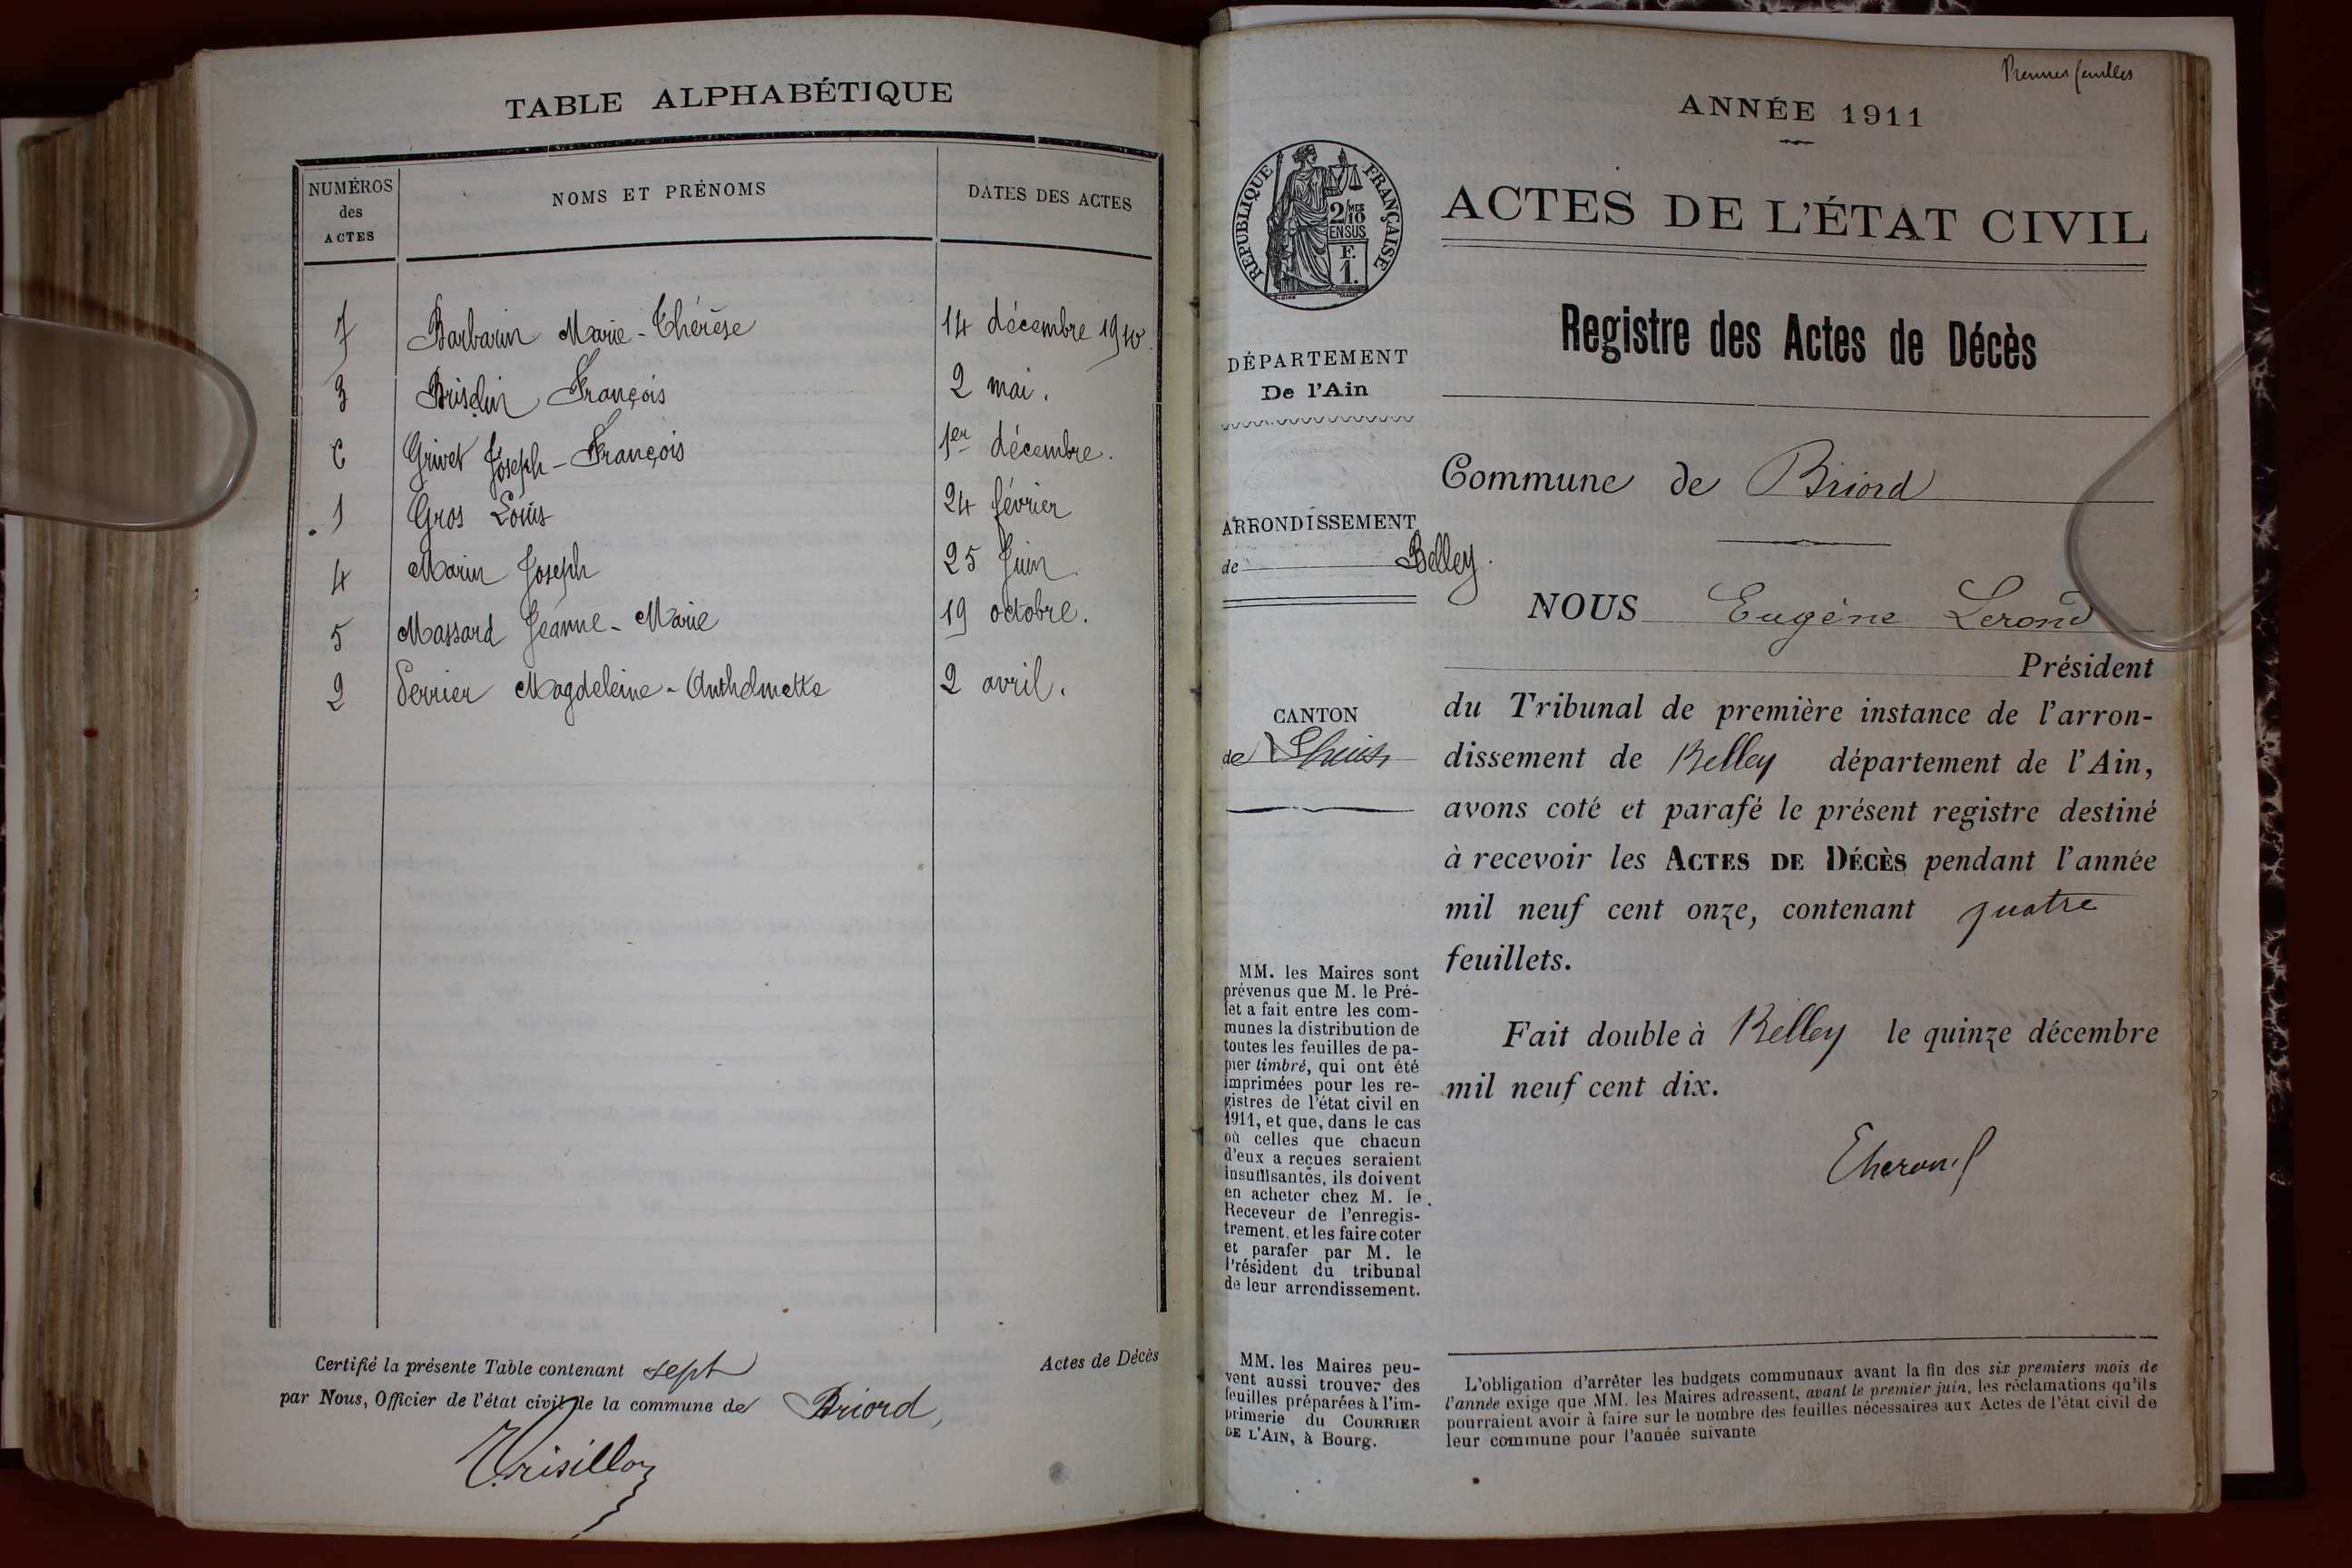 TABLE ALPHABÉTIQUE
NUMÉROS des ACTES
NOMS ET PRÉNOMS
DATES DES ACTES
7 Barbarin Marie-Thérèse 14 décembre 1910.
3 François 2 mai.
6 Grivet Joseph-François 1er décembre.
1 Gros Louis 24 février
4 Marin Joseph 25 Juin.
5 Massard Jeanne-Marie 19 octobre.
2 Perrier Magdeleine-Anthelmette 2 avril.
Certifié la présente Table contenant sept Actes de Décès
par Nous, Officier de l'état civil de la commune de Briord,
ANNÉE 1911
RÉPUBLIQUE FRANÇAISE
2/MES 10
EN SUS
F.
1.
ACTES DE L'ÉTAT CIVIL
Registre des Actes de Décès
DÉPARTEMENT
De l'Ain
ARRONDISSEMENT
de Belley.
CANTON
de Lhuis
MM. les Maires sont
prévenus que M. le Pré-
fet a fait entre les com-
munes la distribution de
toutes les feuilles de pa-
pier timbré, qui ont été
imprimées pour les re-
gistres de l'état civil en
1911, et que, dans le cas
où celles que chacun
d'eux a reçues seraient
insuffisantes, ils doivent
en acheter chez M. le
Receveur de l'enregis-
trement, et les faire coter
et parafer par M. le
Président du tribunal
de leur arrondissement.
MM. les Maires peu-
vent aussi trouver des
feuilles préparées à l'im-
primerie du COURRIER
DE L'AIN, à Bourg.
Commune de Briord
NOUS Eugène Lerond
Président
du Tribunal de première instance de l'arron-
dissement de Belley département de l'Ain,
avons coté et parafé le présent registre destiné
à recevoir les ACTES DE DÉCÈS pendant l'année
mil neuf cent onze, contenant quatre
feuillets.
Fait double à Belley le quinze décembre
mil neuf cent dix.
L'obligation d'arrêter les budgets communaux avant la fin des six premiers mois de
l'année exige que MM. les Maires adressent, avant le premier juin, les réclamations qu'ils
pourraient avoir à faire sur le nombre des feuilles nécessaires aux Actes de l'état civil de
leur commune pour l'année suivante